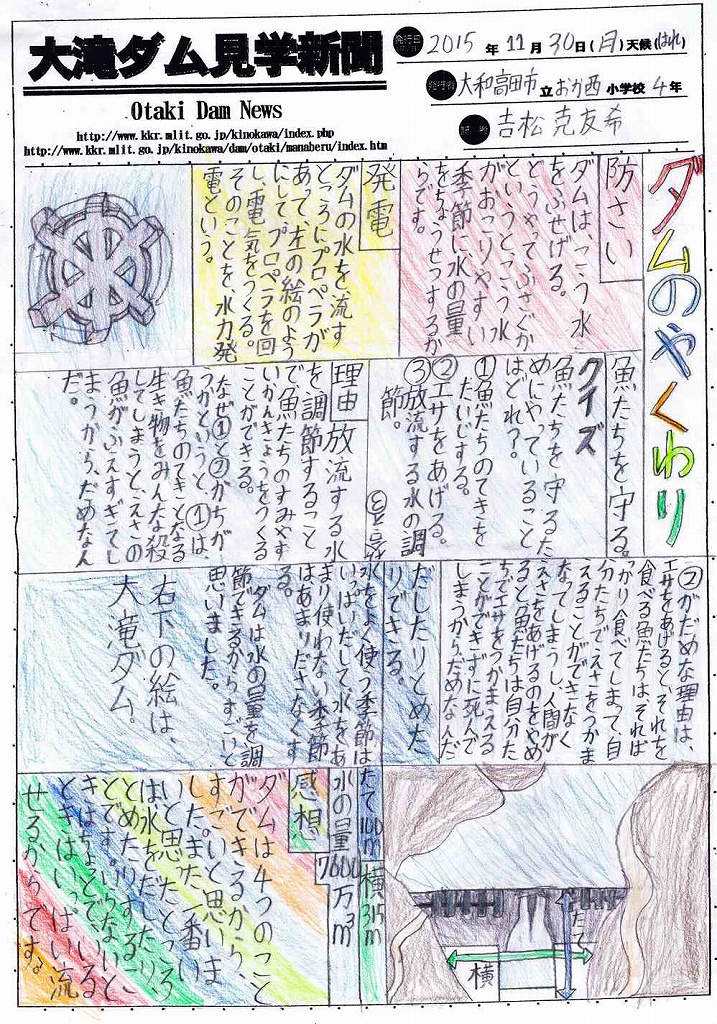 大滝ダム見学新聞
Otaki Dam News
http://www.kkr.mlit.go.jp/kinokawa/index.php
http://www.kkr.mlit.go.jp/kinokawa/dam/otaki/manaberu/index.htm
発行日 2015年11月30日(月)天候(はれ)
発行者 大和高田市立おか西小学校4年
吉松 克友希
ダムのやくわり
防さい
ダムは、こう水
をふせげる。
どうやってふせぐか
というと、こう水
がおこりやすい
季節に、水の量
をちょうせつするか
らです。
発電
ダムの水を流す
ところにプロペラが
あって、左の絵のよう
にして、プロペラを回
し、電気をつくる。
そのことを、水力発
電という。
魚たちを守る。
クイズ
魚たちを守るた
めにやっていること
はどれ?。
①魚たちのてきを
たいじする。
②エサをあげる。
③放流する水の調
節。
理由
放流する水
を調節すること
で、魚たちのすみやす
いかんきょうをつくる
ことができる。
なぜ①と②がちが
うかというと、①は、
魚たちのてきとなる
生き物をみんな殺
してしまうと、えさの
魚がふえすぎてし
まうからだめなん
だ。
②がだめな理由は、
エサをあげると、それを
食べる魚たちは、それば
っかり食べてしまって、自
分たちでえさをつかま
えることができなく
なってしまうし、人間が
えさをあげるのをやめ
ると魚たちは自分た
ちでエサをつかまえる
ことができずに死んで
しまうからだめなんだ
だしたりとめた
りできる。
水をよく使う季節は
いっぱいだして、水をあ
まり使わない季節
はあまりださなくす
る。
ダムは水の量を調
節できるからすごいと
思いました。
右下の絵は、
大滝ダム。
たて100m
横315m
水の量7600万m³
感想
ダムは4つのこと
ができるから、
すごいと思いま
した。また、一番い
いと思ったところ
は、水をだしたり、
とめたりするこ
とです。いらないと
きはちょっとで、いる
ときはいっぱい流
せるからです。
たて
横